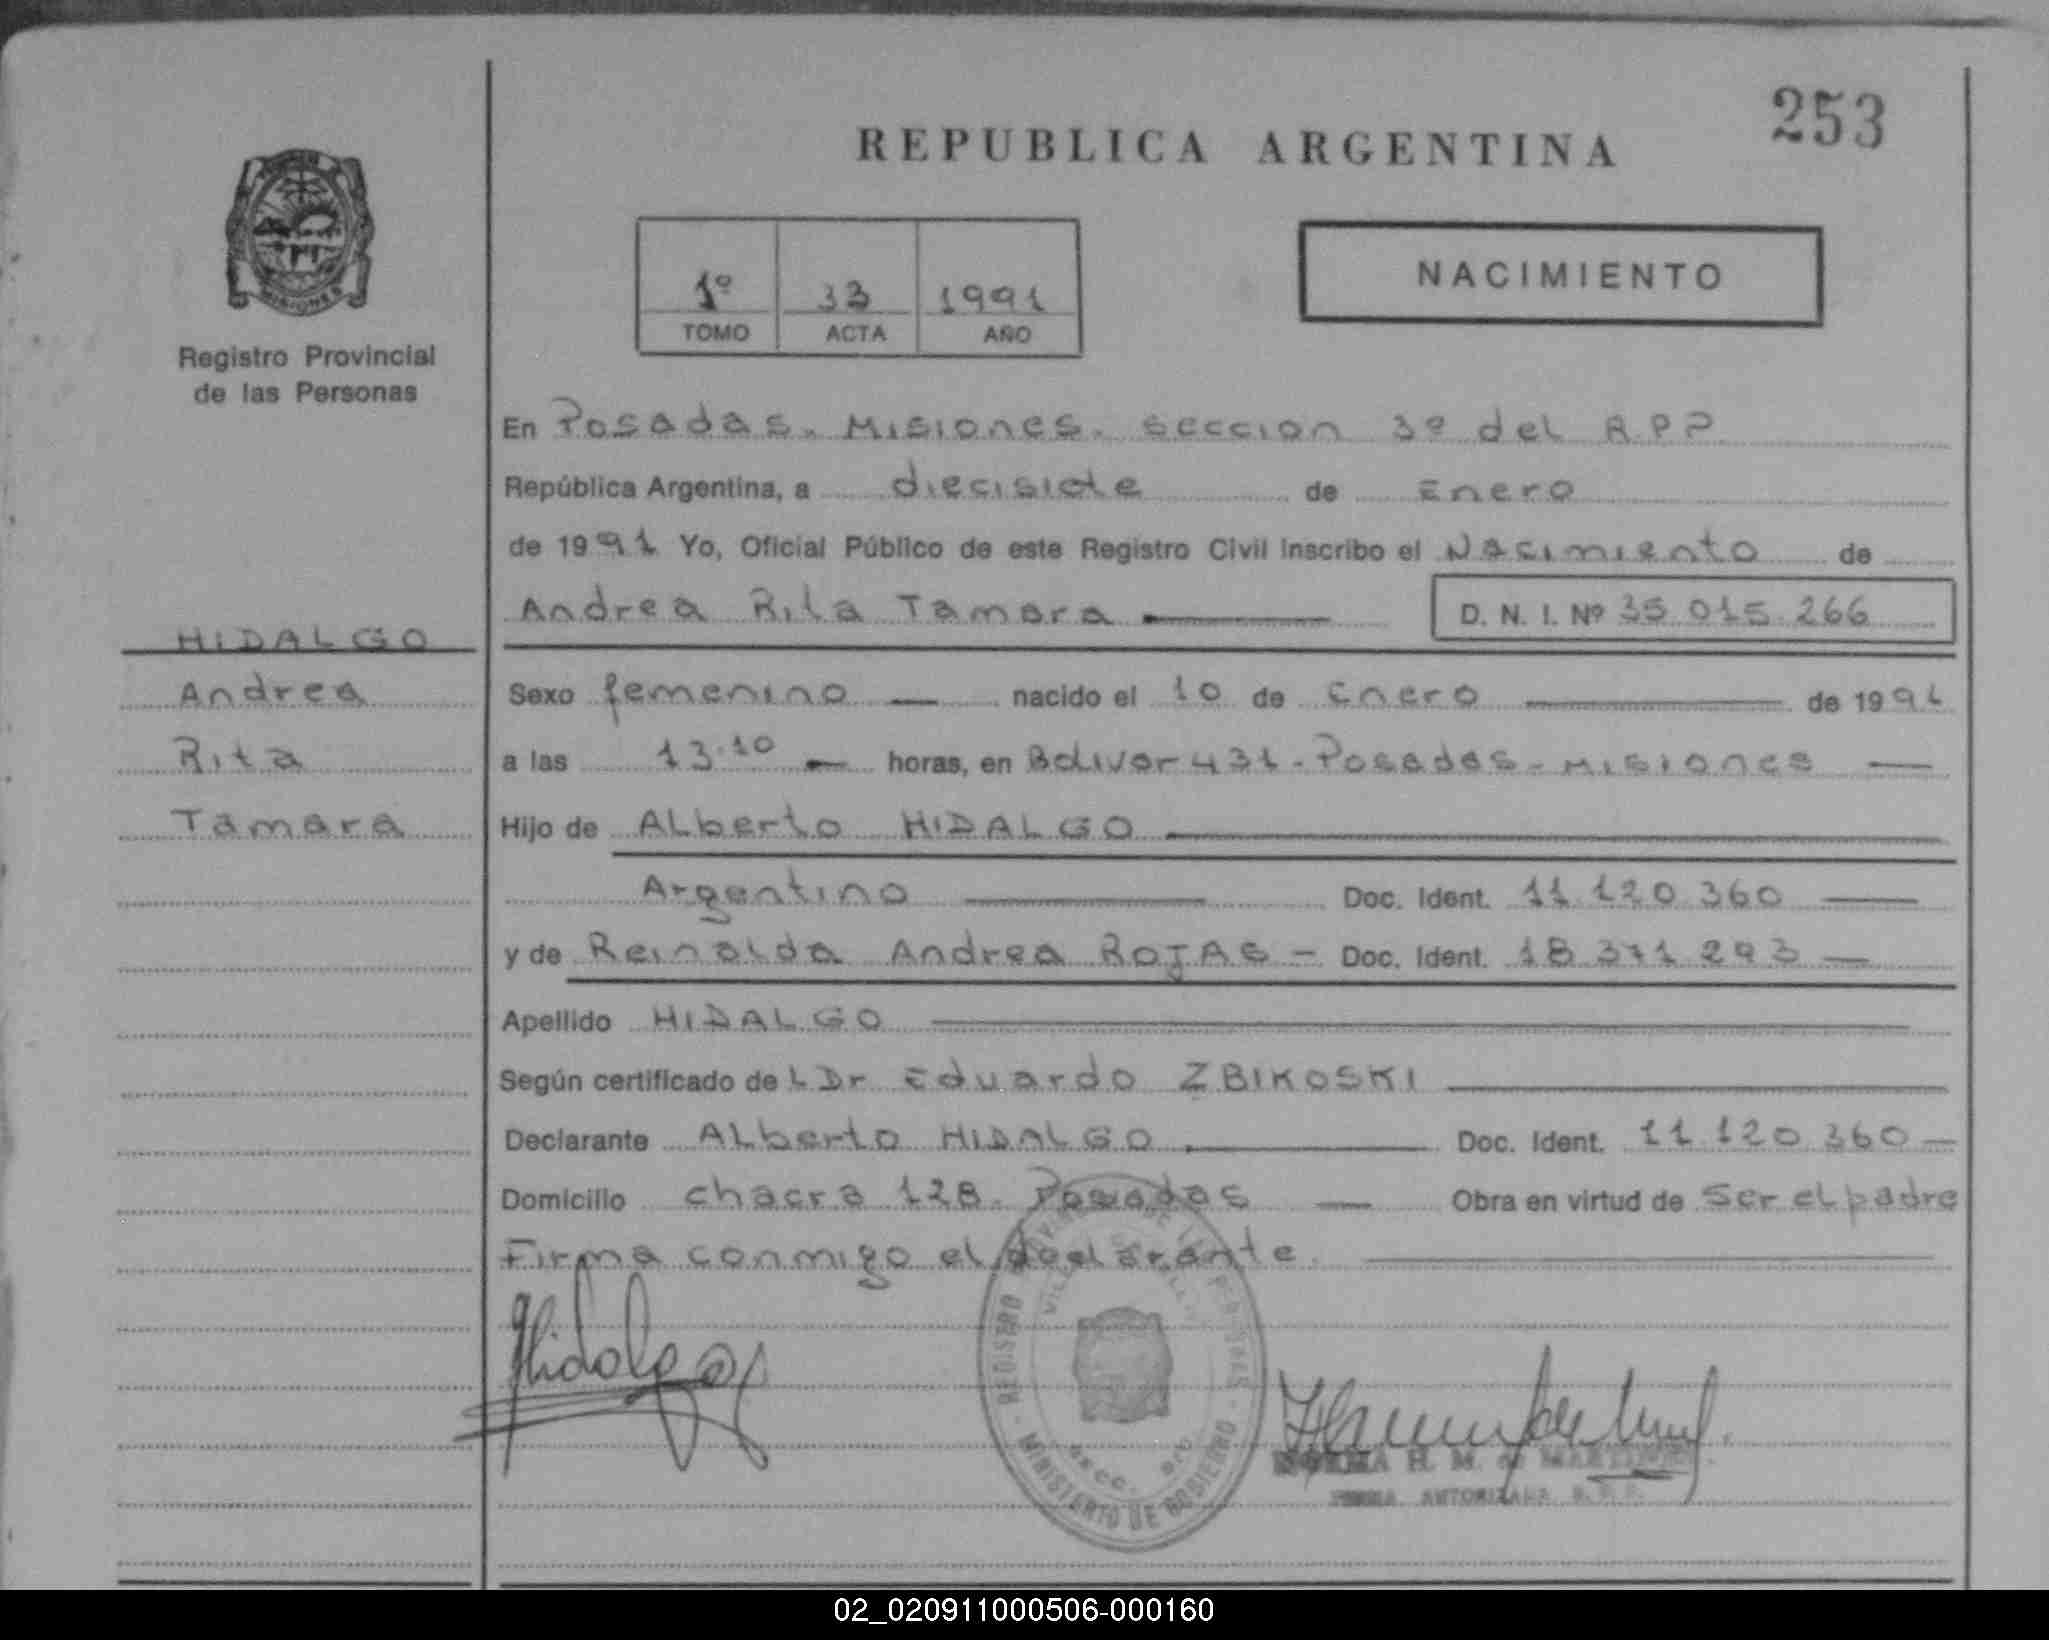 253
REPUBLICA ARGENTINA
NACIMIENTO
1º 33 1991
TOMO ACTA AÑO
MISIONES
Registro Provincial
de las Personas
HIDALGO
Andrea
Rita
Tamara
En Posadas. Misiones. seccion 3º del R.P.P.
República Argentina, a diecisiete de Enero
de 1991 Yo, Oficial Público de este Registro Civil Inscribo el Nacimiento de
Andrea Rita Tamara D. N. I. Nº 35.015.266
Sexo femenino nacido el 10 de Enero de 1991
a las 13.10 horas, en Bolivar 431 - Posadas - Misiones
Hijo de Alberto HIDALGO
Argentino Doc. Ident. 11.120.360
y de Reinalda Andrea ROJAS - Doc. Ident. 18.371.293
Apellido HIDALGO
Según certificado de L Dr Eduardo ZBIKOSKI
Declarante Alberto HIDALGO Doc. Ident. 11.120.360
Domicilio chacra 128. Posadas Obra en virtud de Ser el padre
Firma conmigo el declarante.
Hidalgo
REGISTRO PROVINCIAL DE LAS PERSONAS
MINISTERIO DE GOBIERNO
NORMA H. M. de MARTINEZ
FIRMA AUTORIZADA R.P.P.
02_020911000506-000160